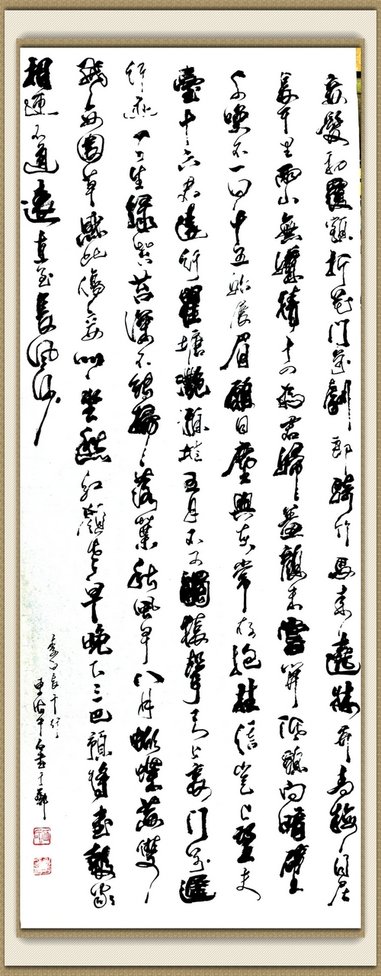 妾髮初覆額折花門前劇郎騎竹馬來遶牀弄青梅同居
長干里兩小無嫌猜十四為君婦羞顏未嘗開低頭向暗壁
千喚不一回十五始展眉願同塵與灰常存抱柱信豈上望夫
臺十六君遠行瞿塘灩澦堆五月不可觸猿聲天上哀門前遲
行迹一一生綠苔苔深不能掃落葉秋風早八月蝴蝶黃雙
飛西園草感此傷妾心坐愁紅顏老早晚下三巴預將書報家
相迎不道遠直至長風沙
李白長干行